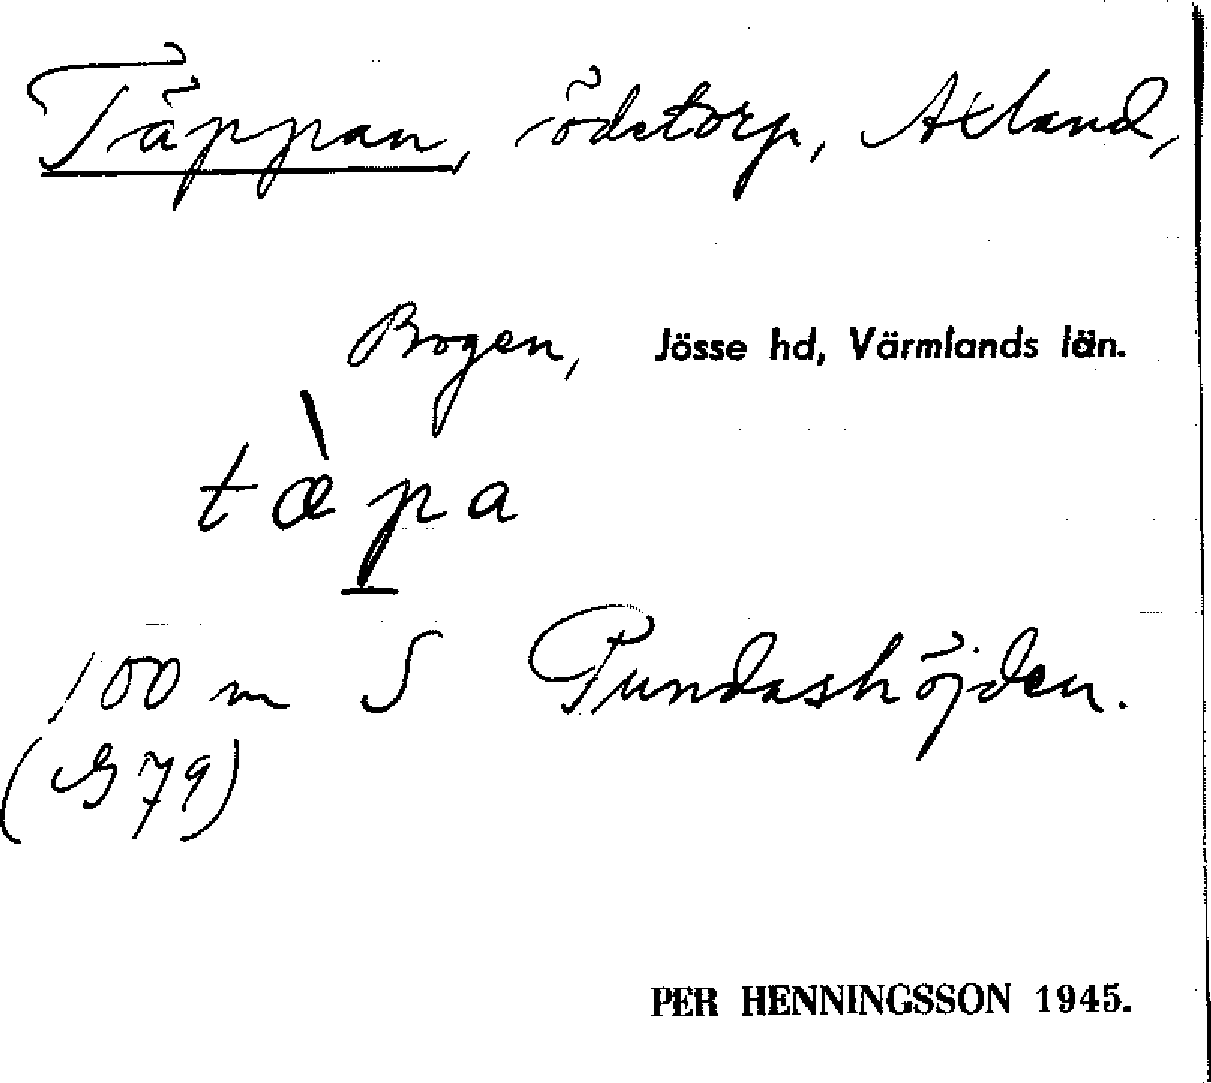 Täppan, ödetorp, Axland,
Bogen, Jösse hd, Värmlands län.
tæ̀pa
100 m S Pundashöjden.
(G 79)
PER HENNINGSSON 1945.